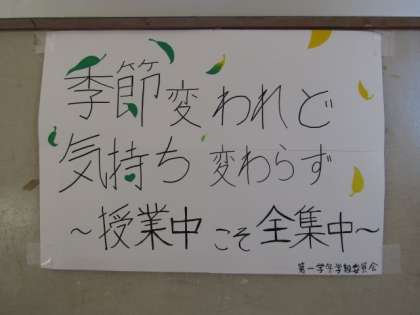 季節変われど
気持ち変わらず
～授業中こそ全集中～
第一学年学級委員会